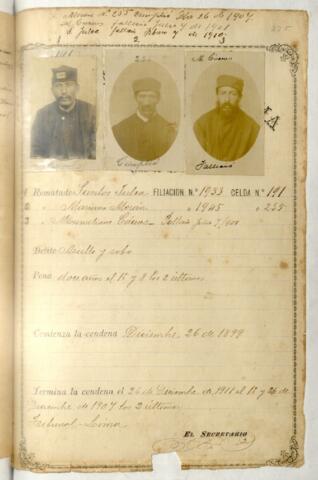 Moran N.º 255 cumplió Dbre 26 de 1907.
M. Cuevas falleció Julio 7 de 1900
S. Julca
1 2 3
191 255 M. Cuevas
Cumplió Falleció
1 Rematado Santos Julca FILIACIÓN N.º 1933 CELDA N.º 191
2 " Mariano Moran " 1945 " 255
3 " Maximiliano Cuevas Falleció Julio 7/900
Delito Asalto y robo
Pena doce años el 1º y 8 los 2 últimos
Comienza la condena Diciembre 26 de 1899
Termina la condena el 26 de Diciembre de 1911 el 1º y 26 de
Diciembre de 1907 los 2 últimos
Tribunal - Lima
EL SECRETARIO